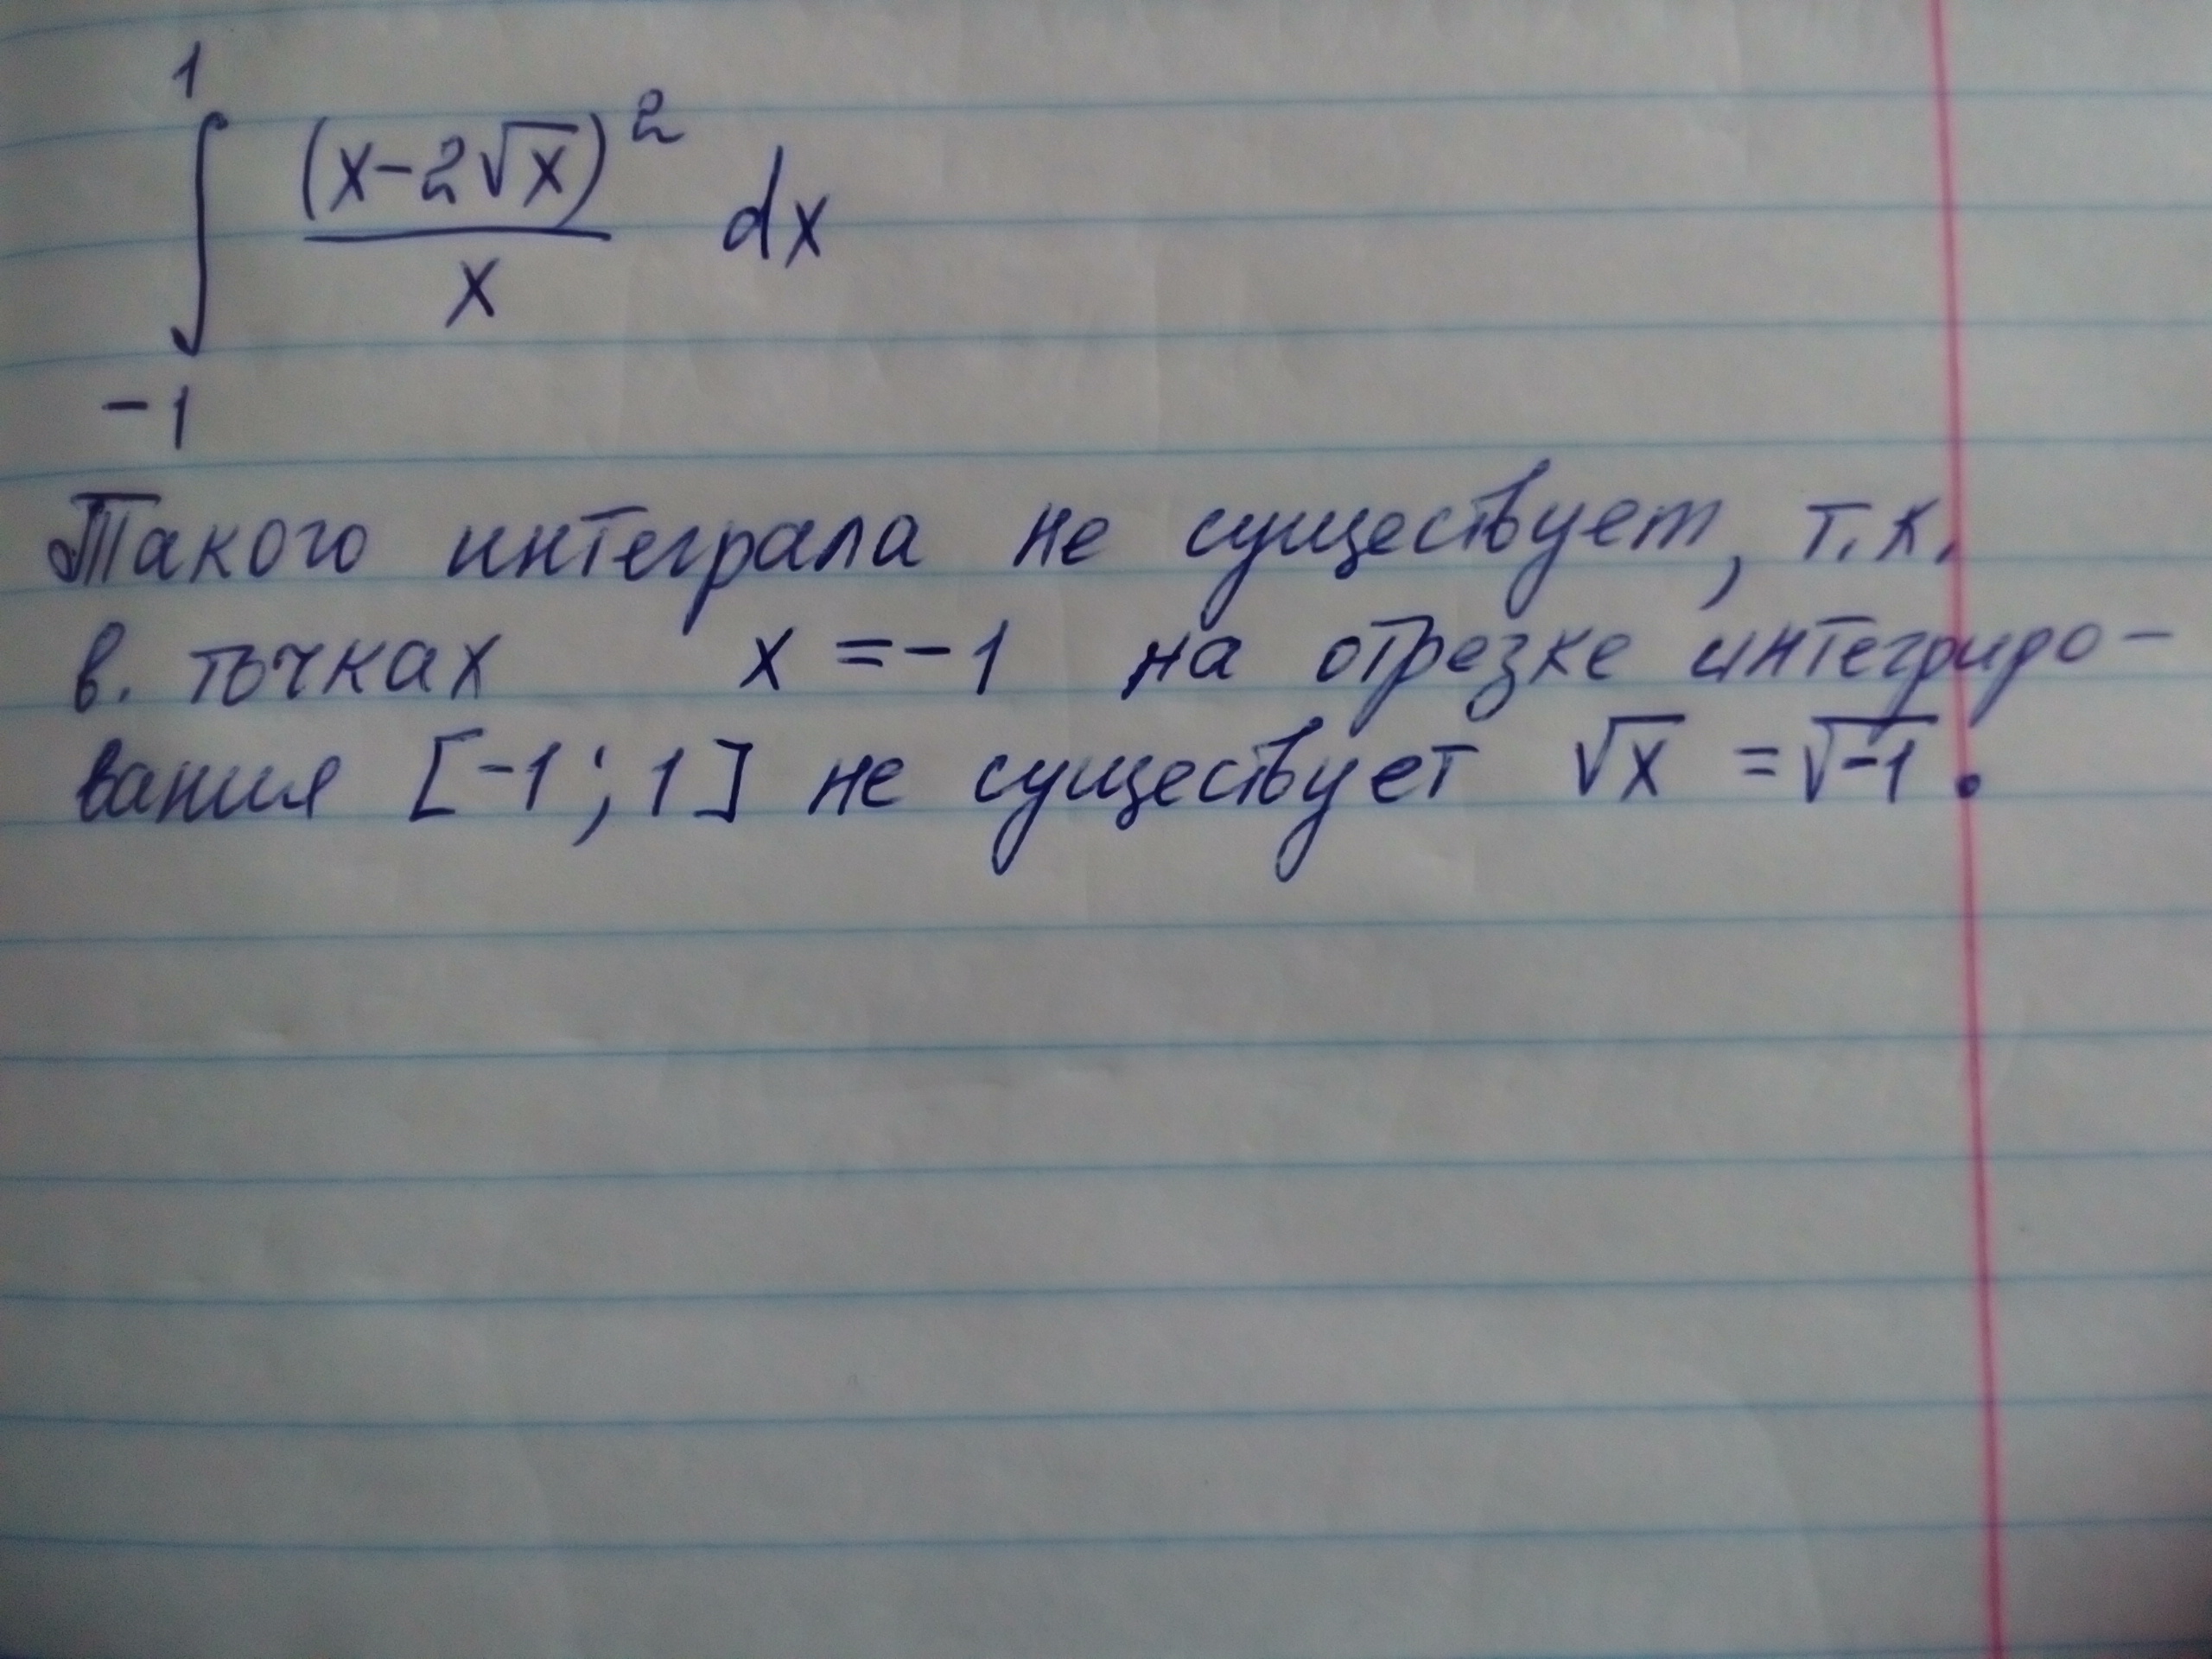 ∫₋₁¹ (x-2√x)² / x dx
Такого интеграла не существует, т.к.
в. точках x = -1 на отрезке интегриро-
вания [-1; 1] не существует √x = √-1.